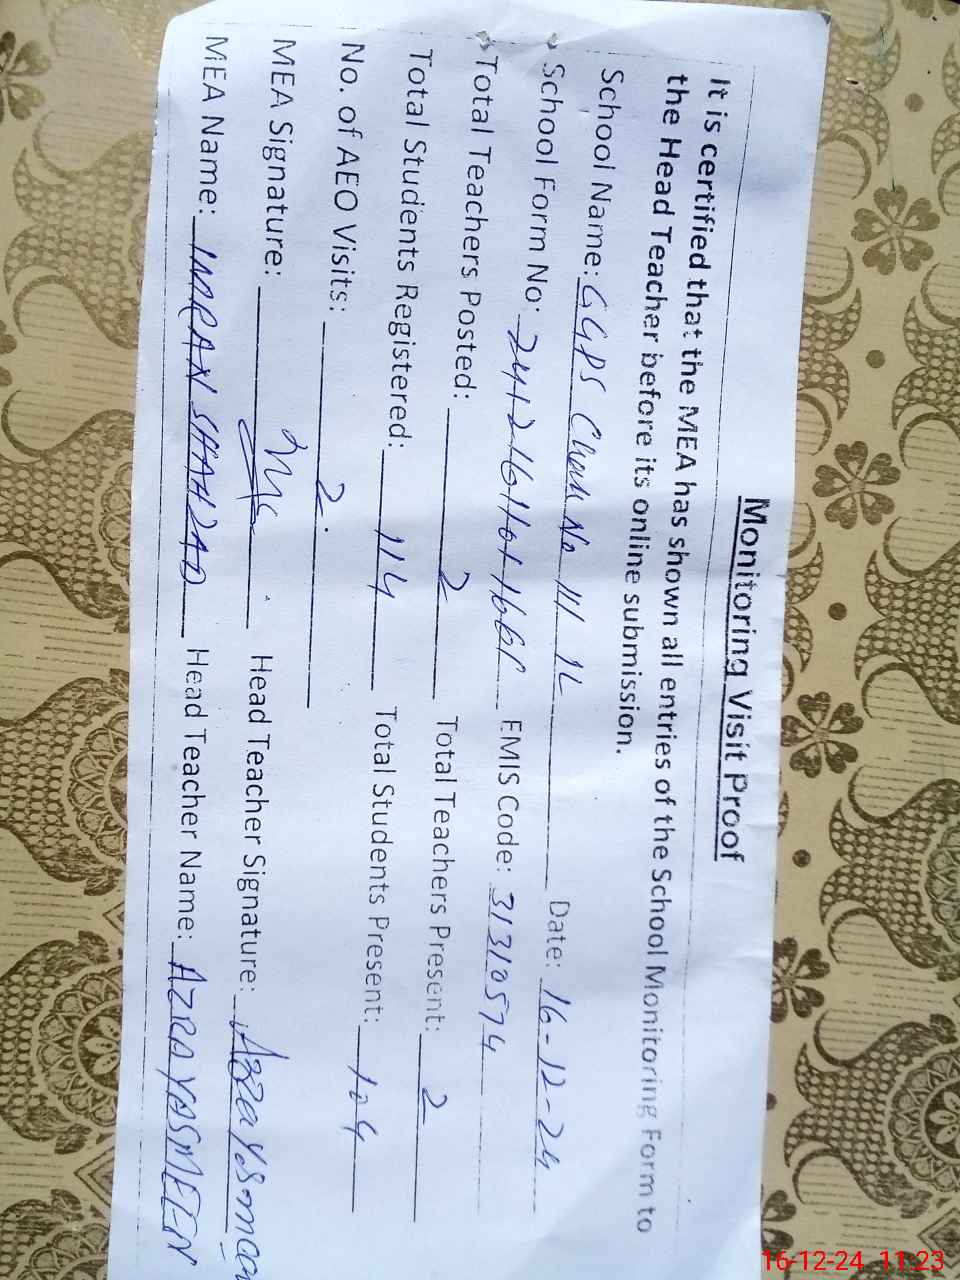 Monitoring Visit Proof
It is certified that the MEA has shown all entries of the School Monitoring Form to
the Head Teacher before its online submission.
School Name: GGPS Chak No 111 1L Date: 16-12-24
School Form No: EMIS Code: 31310574
Total Teachers Posted: 2 Total Teachers Present: 2
Total Students Registered: 114 Total Students Present: 104
No. of AEO Visits: 2
MEA Signature: Head Teacher Signature: Azra Yasmeen
MEA Name: IMRAN SHAHZAD Head Teacher Name: AZRA YASMEEN
16-12-24 11:23